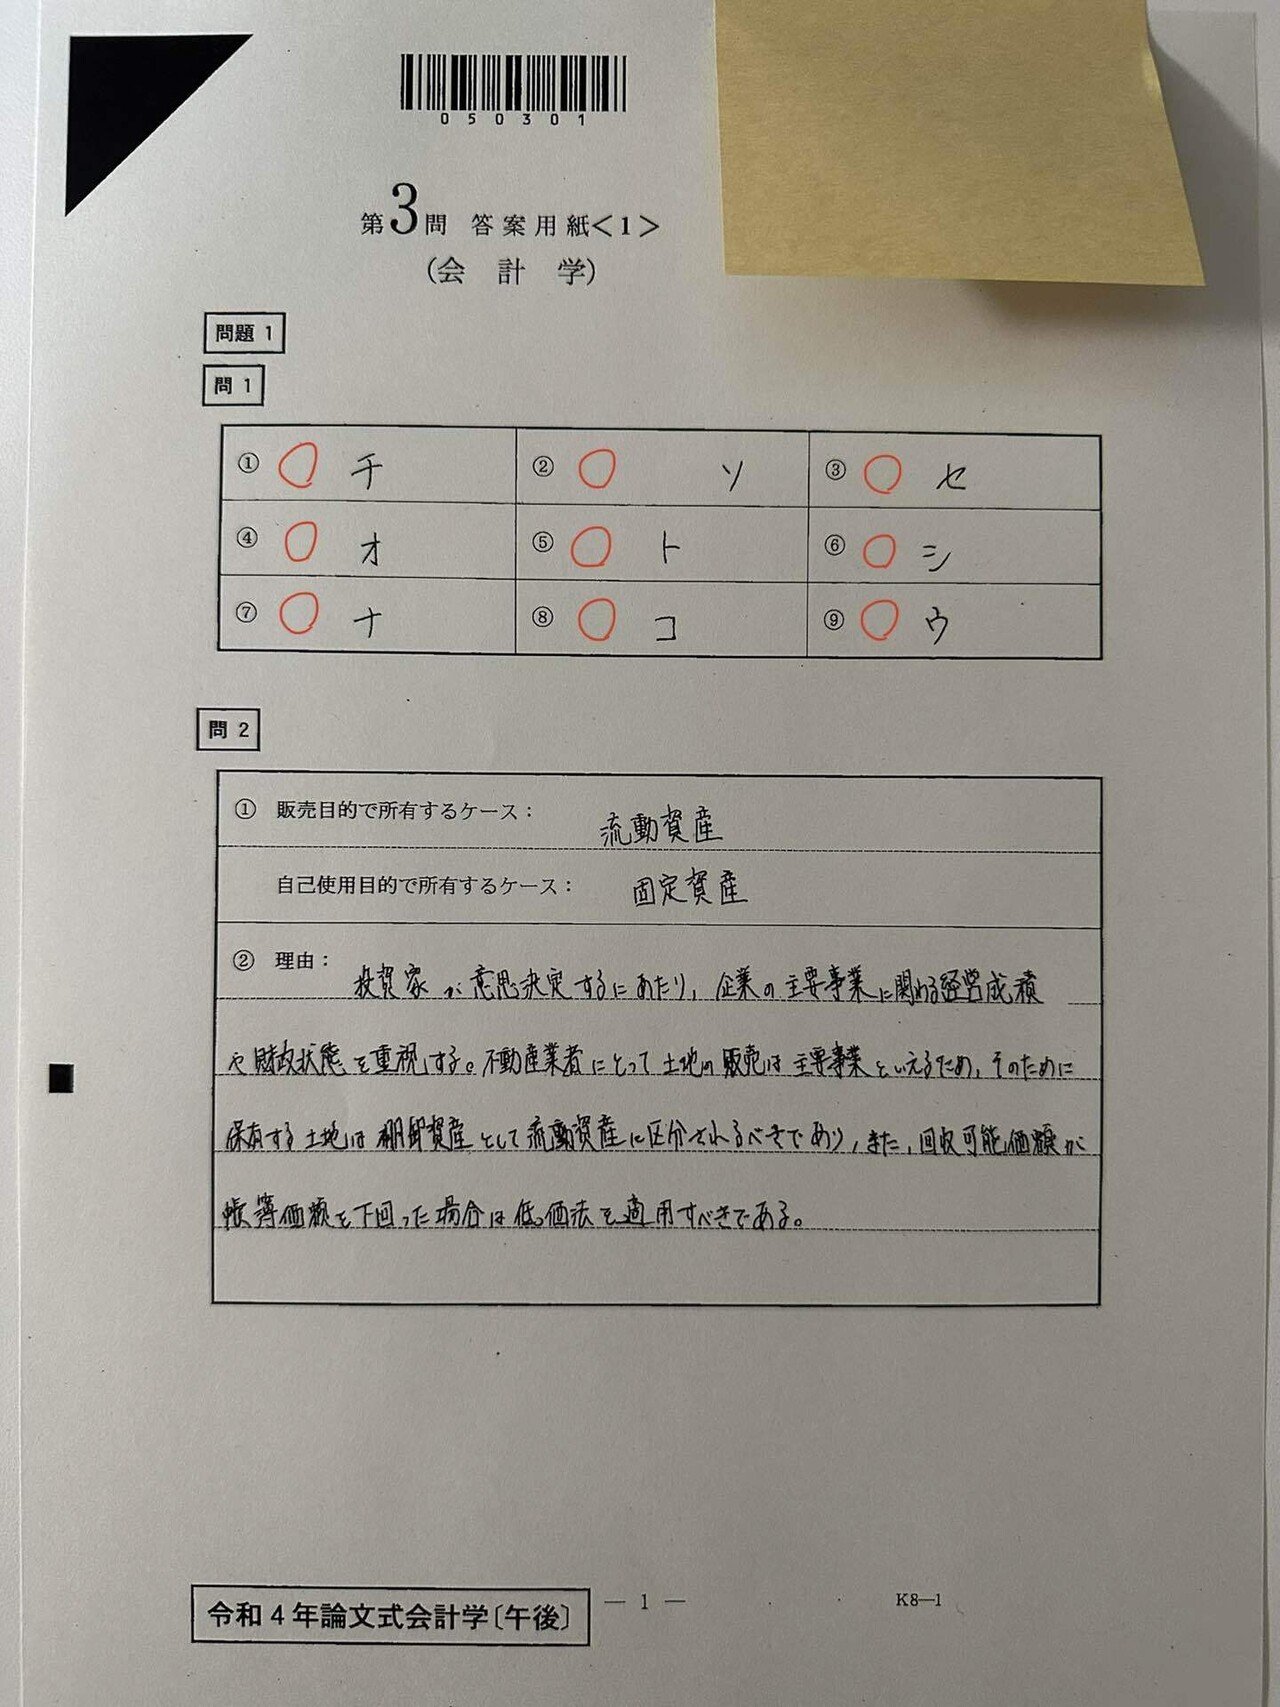 050301
第3問 答案用紙<1>
(会計学)
問題 1
問 1
① チ ② ソ ③ セ
④ オ ⑤ ト ⑥ シ
⑦ ナ ⑧ コ ⑨ ウ
問 2
① 販売目的で所有するケース: 流動資産
自己使用目的で所有するケース: 固定資産
② 理由: 投資家が意思決定するにあたり、企業の主要事業に関わる経営成績
や財政状態を重視する。不動産業者にとって土地の販売は主要事業といえるため、そのために
保有する土地は棚卸資産として流動資産に区分されるべきであり、また、回収可能価額が
帳簿価額を下回った場合は低価法を適用すべきである。
令和4年論文式会計学〔午後〕 — 1 — K8—1